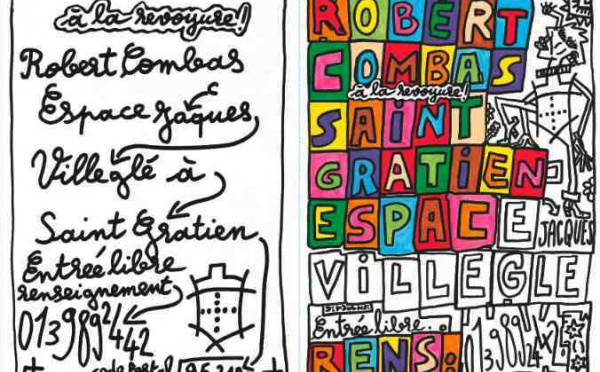 à la revoyure!
Robert Combas
Espace Jaques
c
Villeglé à
Saint Gratien
Entrée libre
renseignement
0139892442
code Postal
ROBERT
COMBAS
à la revoyure!
SAINT
GRATIEN
ESPACE
JACQUES
ViLLEGLE
Entrée libre..
RENS: